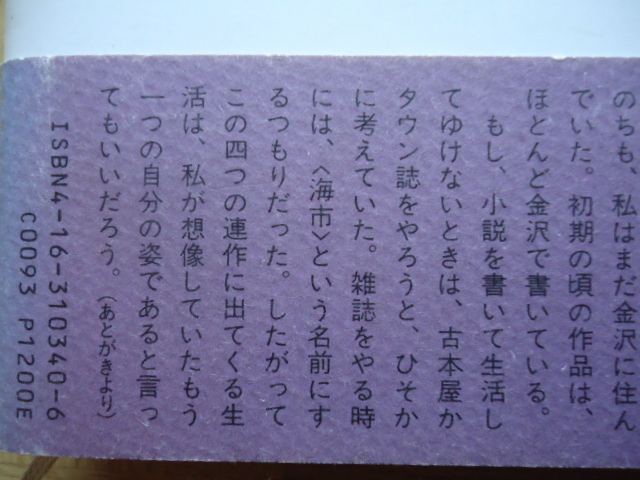 のちも、私はまだ金沢に住ん
でいた。初期の頃の作品は、
ほとんど金沢で書いている。
もし、小説を書いて生活し
てゆけないときは、古本屋か
タウン誌をやろうと、ひそか
に考えていた。雑誌をやる時
には、〈海市〉という名前にす
るつもりだった。したがって
この四つの連作に出てくる生
活は、私が想像していたもう
一つの自分の姿であると言っ
てもいいだろう。(あとがきより)
ISBN4-16-310340-6
C0093 P1200E